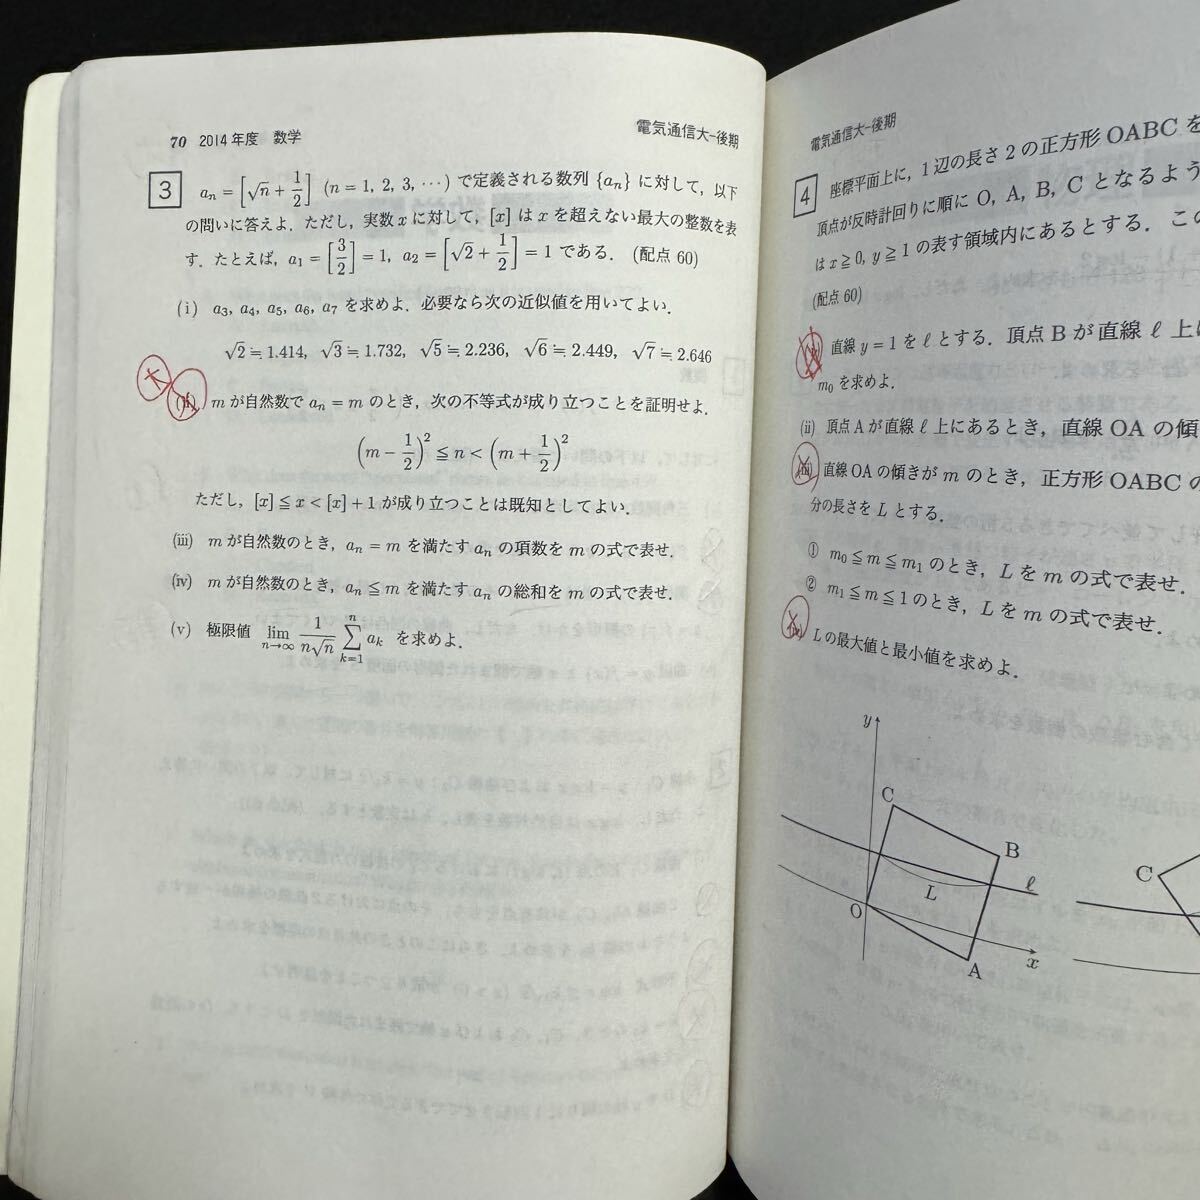 70 2014年度 数学
電気通信大-後期
3 a_n = [√n + 1/2] (n = 1, 2, 3, ···) で定義される数列 {a_n} に対して，以下
の問いに答えよ．ただし，実数 x に対して，[x] は x を超えない最大の整数を表
す．たとえば，a_1 = [3/2] = 1, a_2 = [√2 + 1/2] = 1 である．(配点 60)
(i) a_3, a_4, a_5, a_6, a_7 を求めよ．必要なら次の近似値を用いてよい．
√2 ≒ 1.414, √3 ≒ 1.732, √5 ≒ 2.236, √6 ≒ 2.449, √7 ≒ 2.646
(ii) m が自然数で a_n = m のとき，次の不等式が成り立つことを証明せよ．
(m − 1/2)² ≦ n < (m + 1/2)²
ただし，[x] ≦ x < [x] + 1 が成り立つことは既知としてよい．
(iii) m が自然数のとき，a_n = m を満たす a_n の項数を m の式で表せ．
(iv) m が自然数のとき，a_n ≦ m を満たす a_n の総和を m の式で表せ．
(v) 極限値 lim_{n→∞} 1/(n√n) Σ_{k=1}^{n} a_k を求めよ．
電気通信大-後期
4 座標平面上に，1辺の長さ 2 の正方形 OABC を
頂点が反時計回りに順に O, A, B, C となるよう
は x ≧ 0, y ≧ 1 の表す領域内にあるとする．この
(配点 60)
直線 y = 1 を ℓ とする．頂点 B が直線 ℓ 上に
m_0 を求めよ．
(ii) 頂点 A が直線 ℓ 上にあるとき，直線 OA の傾
(iii) 直線 OA の傾きが m のとき，正方形 OABC の
分の長さを L とする．
① m_0 ≦ m ≦ m_1 のとき，L を m の式で表せ．
② m_1 ≦ m ≦ 1 のとき，L を m の式で表せ．
L の最大値と最小値を求めよ．
y
C
B
L
ℓ
O
A
x
C